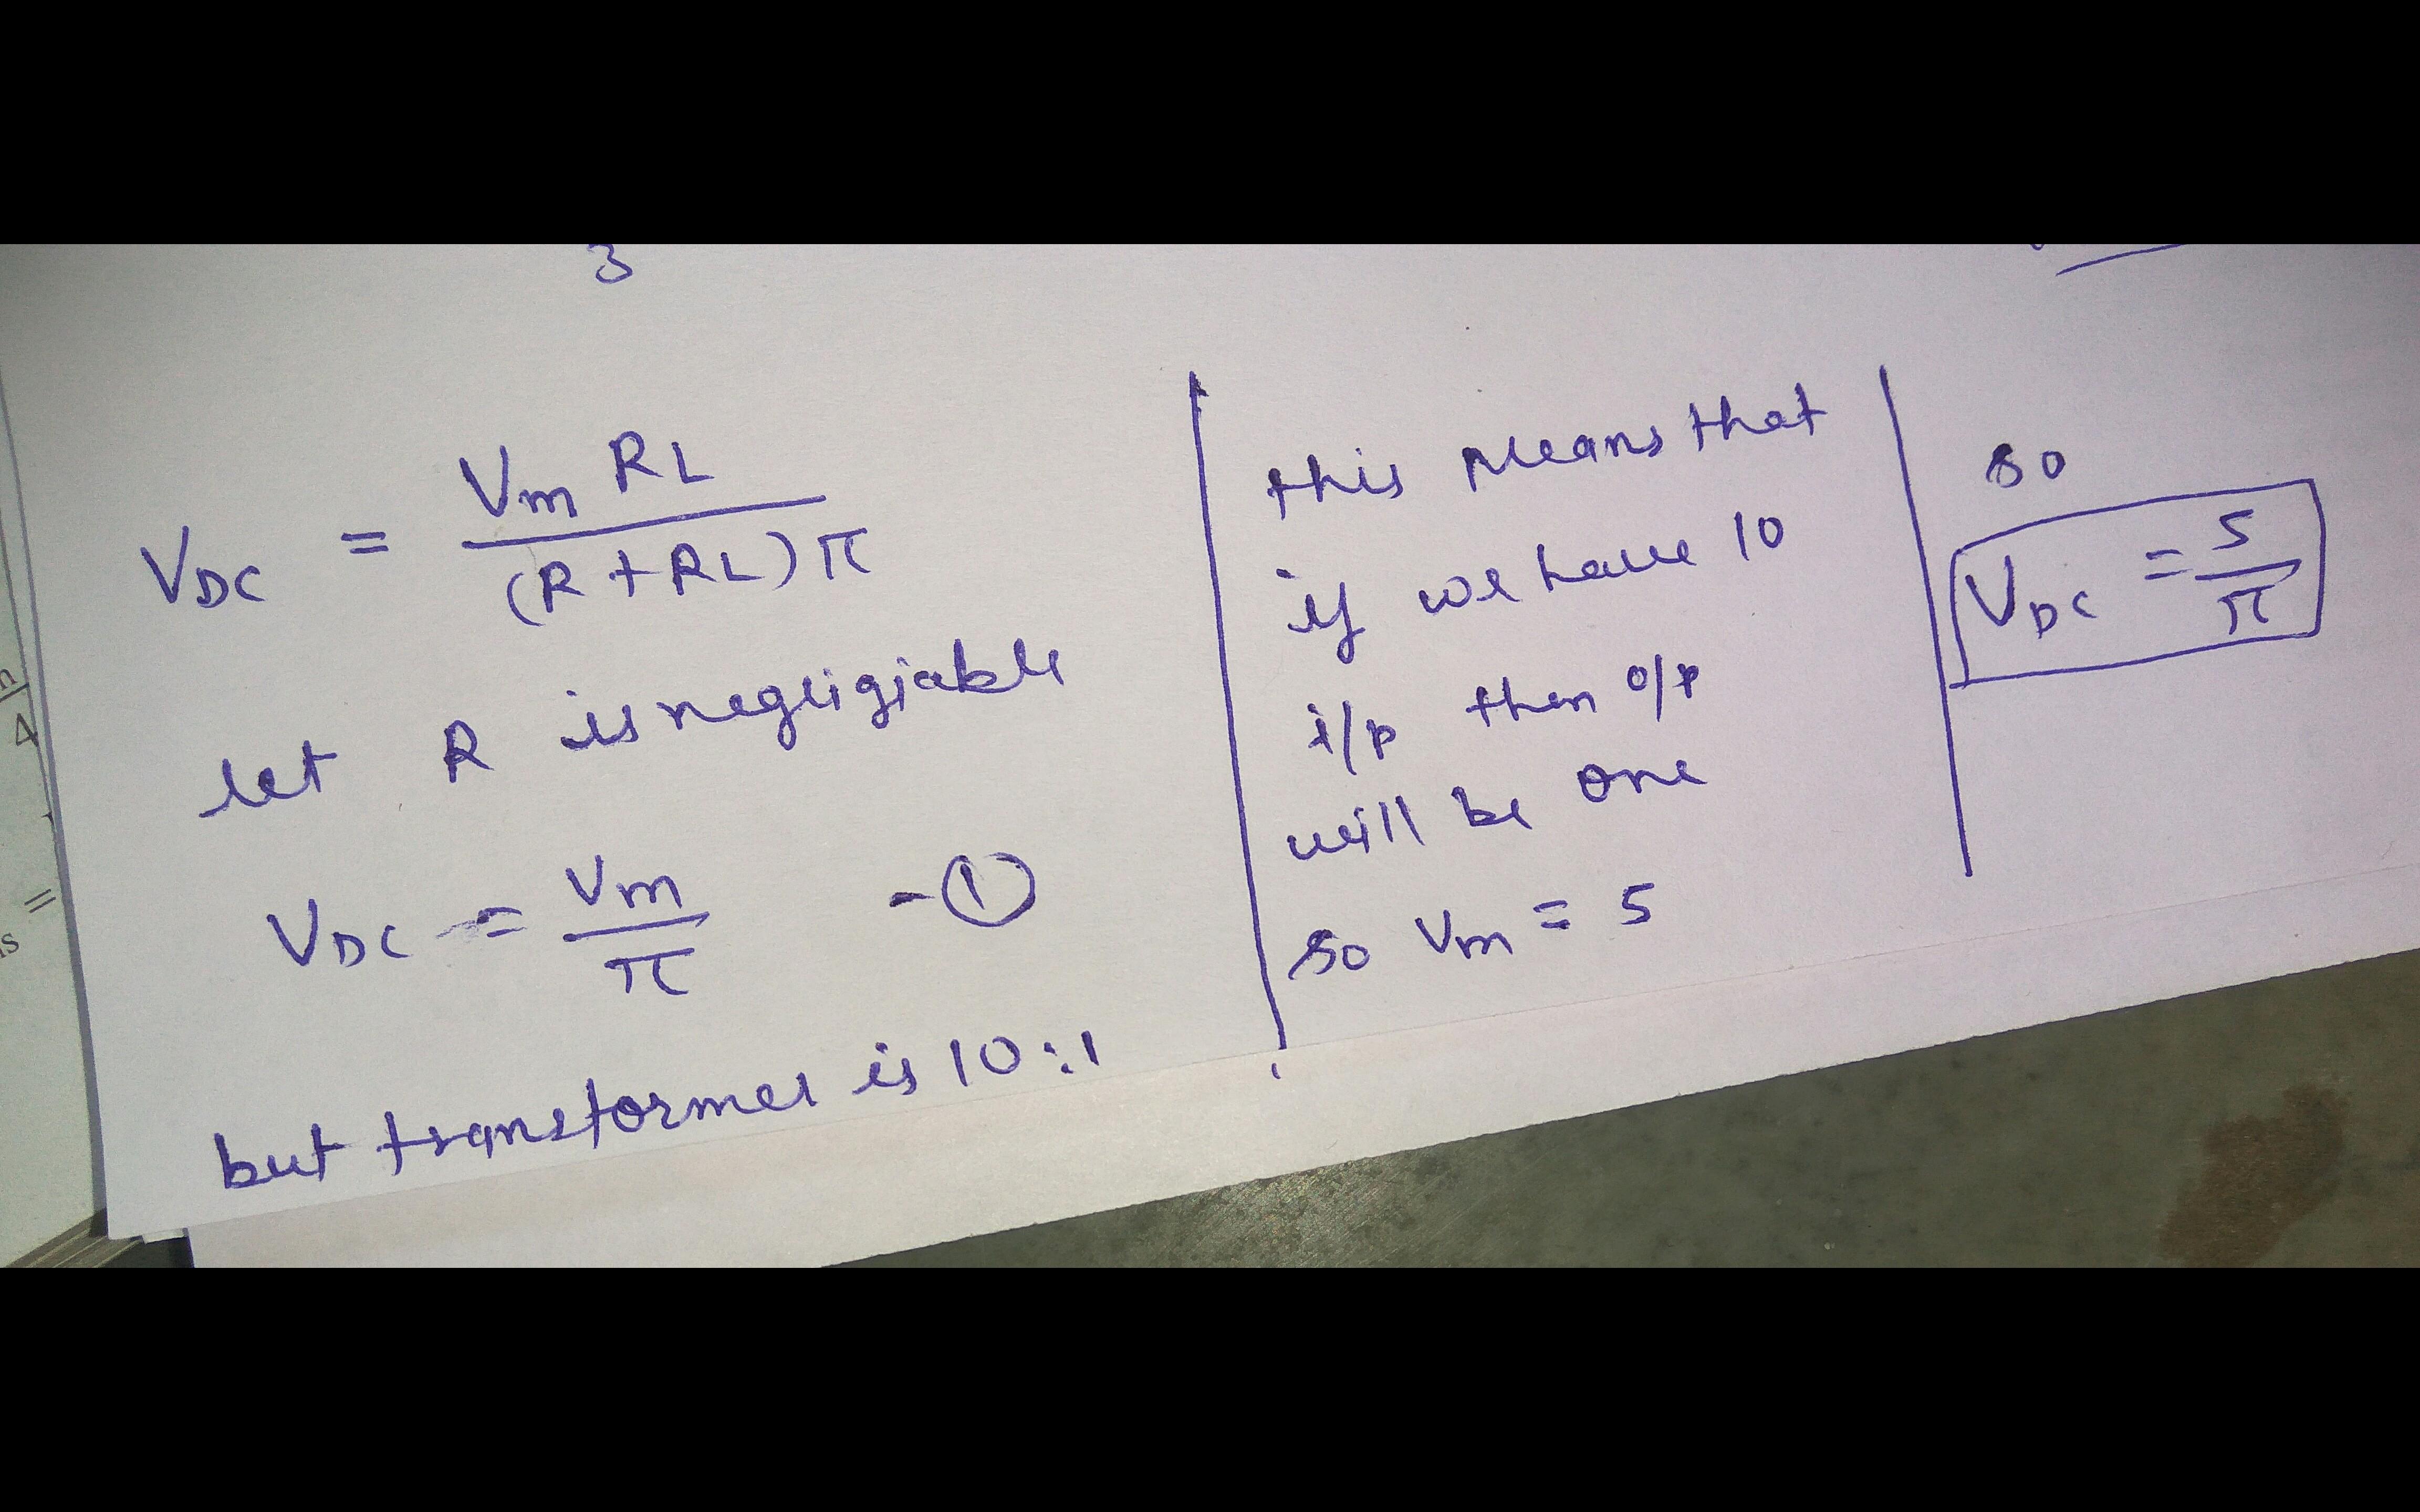 3
V_DC = V_m R_L / (R + R_L) π
let R is negligiable
V_DC = V_m / π - ①
but transformer is 10:1
this means that
if we have 10
i/p then o/p
will be one
so V_m = 5
so
V_DC = 5 / π
n
4
=
s